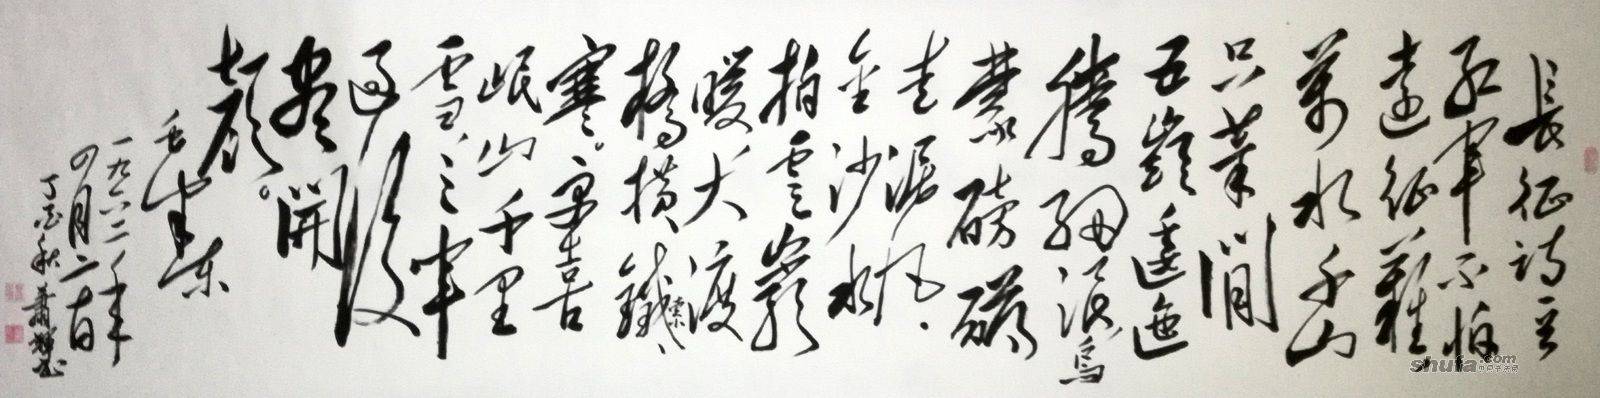 長征诗一首
红軍不怕
遠征難
萬水千山
只等閒
五嶺逶迤
腾细浪烏
蒙磅礴
走泥丸、
金沙水
拍雲巖
暖大渡
橋横鐵索、
寒。更喜
岷山千里
雪、三軍
过後
尽開
颜。
毛泽东
一九六二年
四月二十日
丁酉秋 蕭
shufa.com